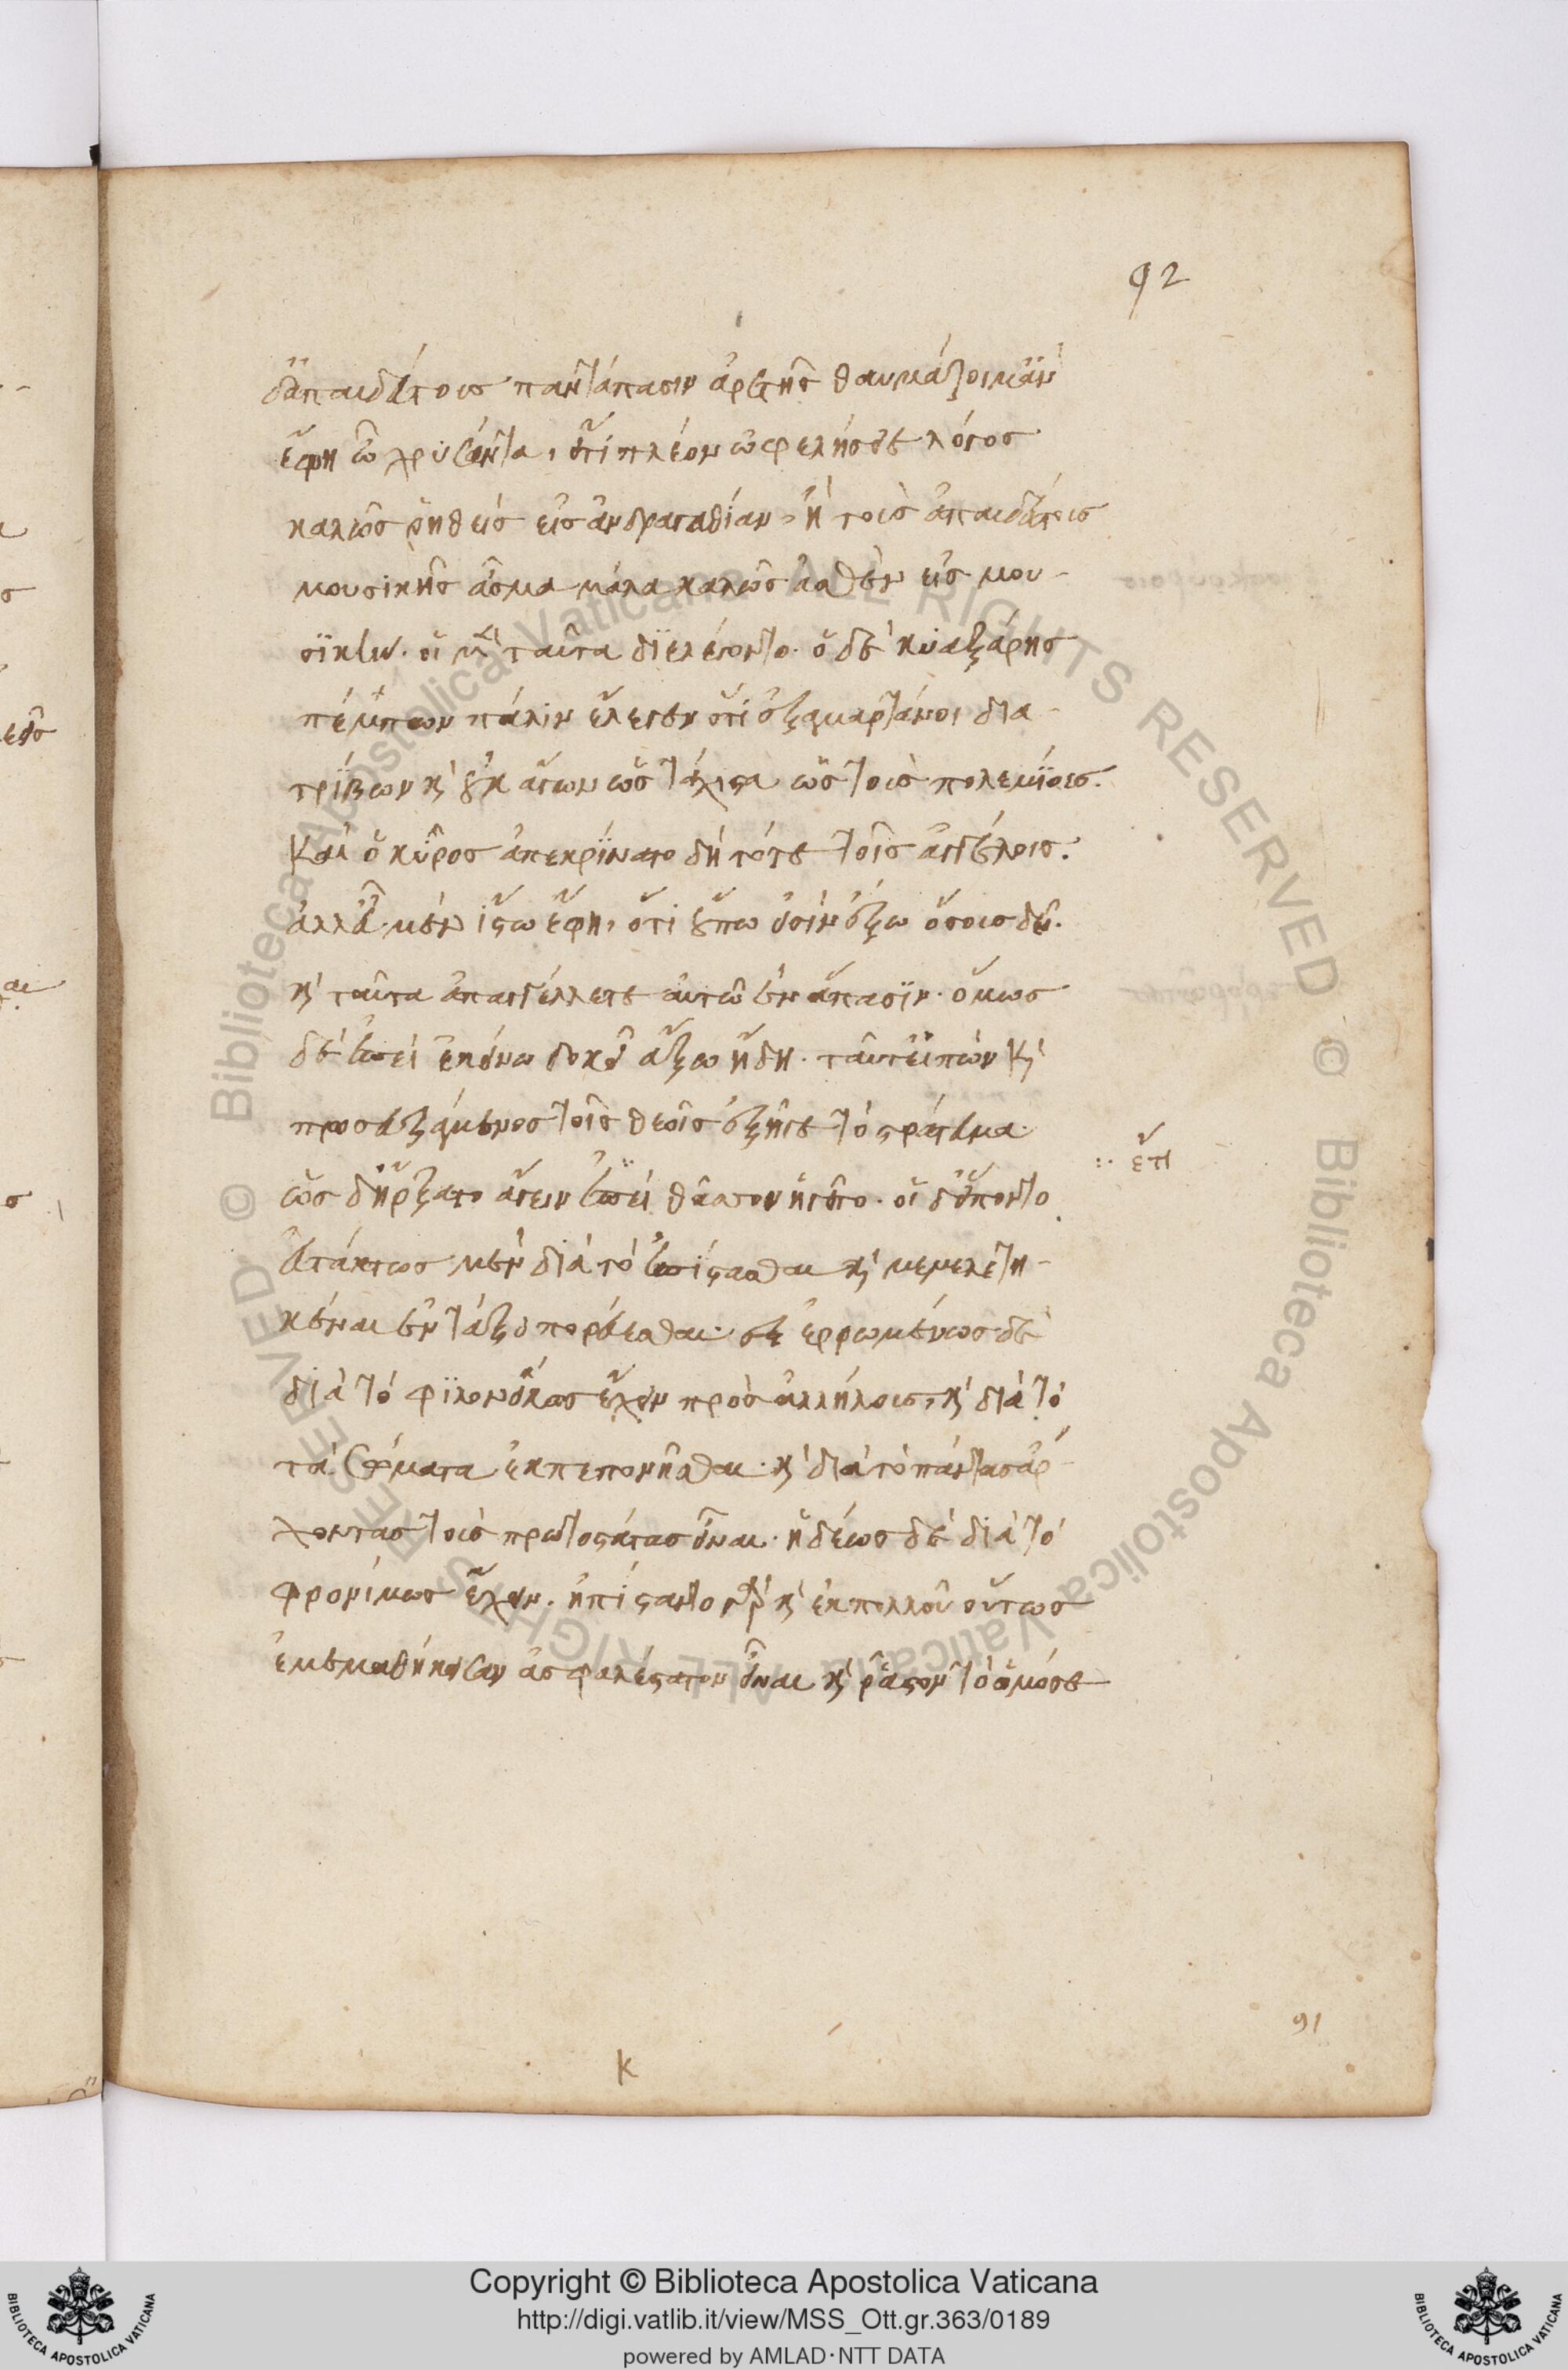 92
δ᾽ ἀπαιδεύτους παντάπασιν ἀρετῆς θαυμάζοιμ᾽ ἂν
ἔφη ὦ χρυσάντα, εἴ τι πλέον ὠφελήσειε λόγος
καλῶς ῥηθεὶς εἰς ἀνδραγαθίαν, ἢ τοὺς ἀπαιδεύτους
μουσικῆς ᾆσμα μάλα καλῶς ἀσθὲν εἰς μου-
σϊκήν. οἱ μὲν ταῦτα διελέγοντο. ὁ δὲ κυαξάρης
πέμπων πάλιν ἔλεγεν ὅτι ἐξαμαρτάνοι δια-
τρίβων κ̀ οὐκ ἄγων ὡς τάχιστα ὡς τοὺς πολεμίους.
Καὶ ὁ κῦρος ἀπεκρίνατο δὴ τότε τοῖς ἀγγέλοις.
ἀλλ᾽ εὖ μὲν ἴστω ἔφη, ὅτι οὔπω εἰσὶν ἔξω ὅσους δεῖ.
κ̀ ταῦτα ἀπαγγέλλετε αὐτῷ ἐν ἅπασιν. ὅμως
δὲ ἐπεὶ ἐκείνω δοκεῖ ἄξω ἤδη. ταῦτ᾽ εἰπὼν κ̀
προσευξάμενος τοῖς θεοῖς ἐξῆγε τὸ στράτευμα.
ὡς δ᾽ ἤρξατο ἄγειν ἐπεὶ θᾶττον ἡγεῖτο. οἱ δ᾽ εἵποντο
εὐτάκτως μὲν διὰ τὸ ἐπίστασθαι κ̀ μεμελετη-
κέναι ἐν τάξει πορεύεσθαι. ἐρρωμένως δὲ
διὰ τὸ φιλονείκως ἔχειν πρὸς ἀλλήλους, κ̀ διὰ τὸ
τὰ σώματα ἐκπεπονῆσθαι. κ̀ διὰ τὸ πάντας ἄρ-
χοντας τοὺς πρωτοστάτας εἶναι. ἡδέως δὲ διὰ τὸ
φρονίμως ἔχειν. ἠπίσταντο γὰρ κ̀ ἐκ πολλοῦ οὕτως
ἐμεμαθήκεσαν ἀσφαλέστατον εἶναι κ̀ ῥᾷστον τὸ ὁμόσε
91
K
Copyright © Biblioteca Apostolica Vaticana
http://digi.vatlib.it/view/MSS_Ott.gr.363/0189
powered by AMLAD·NTT DATA